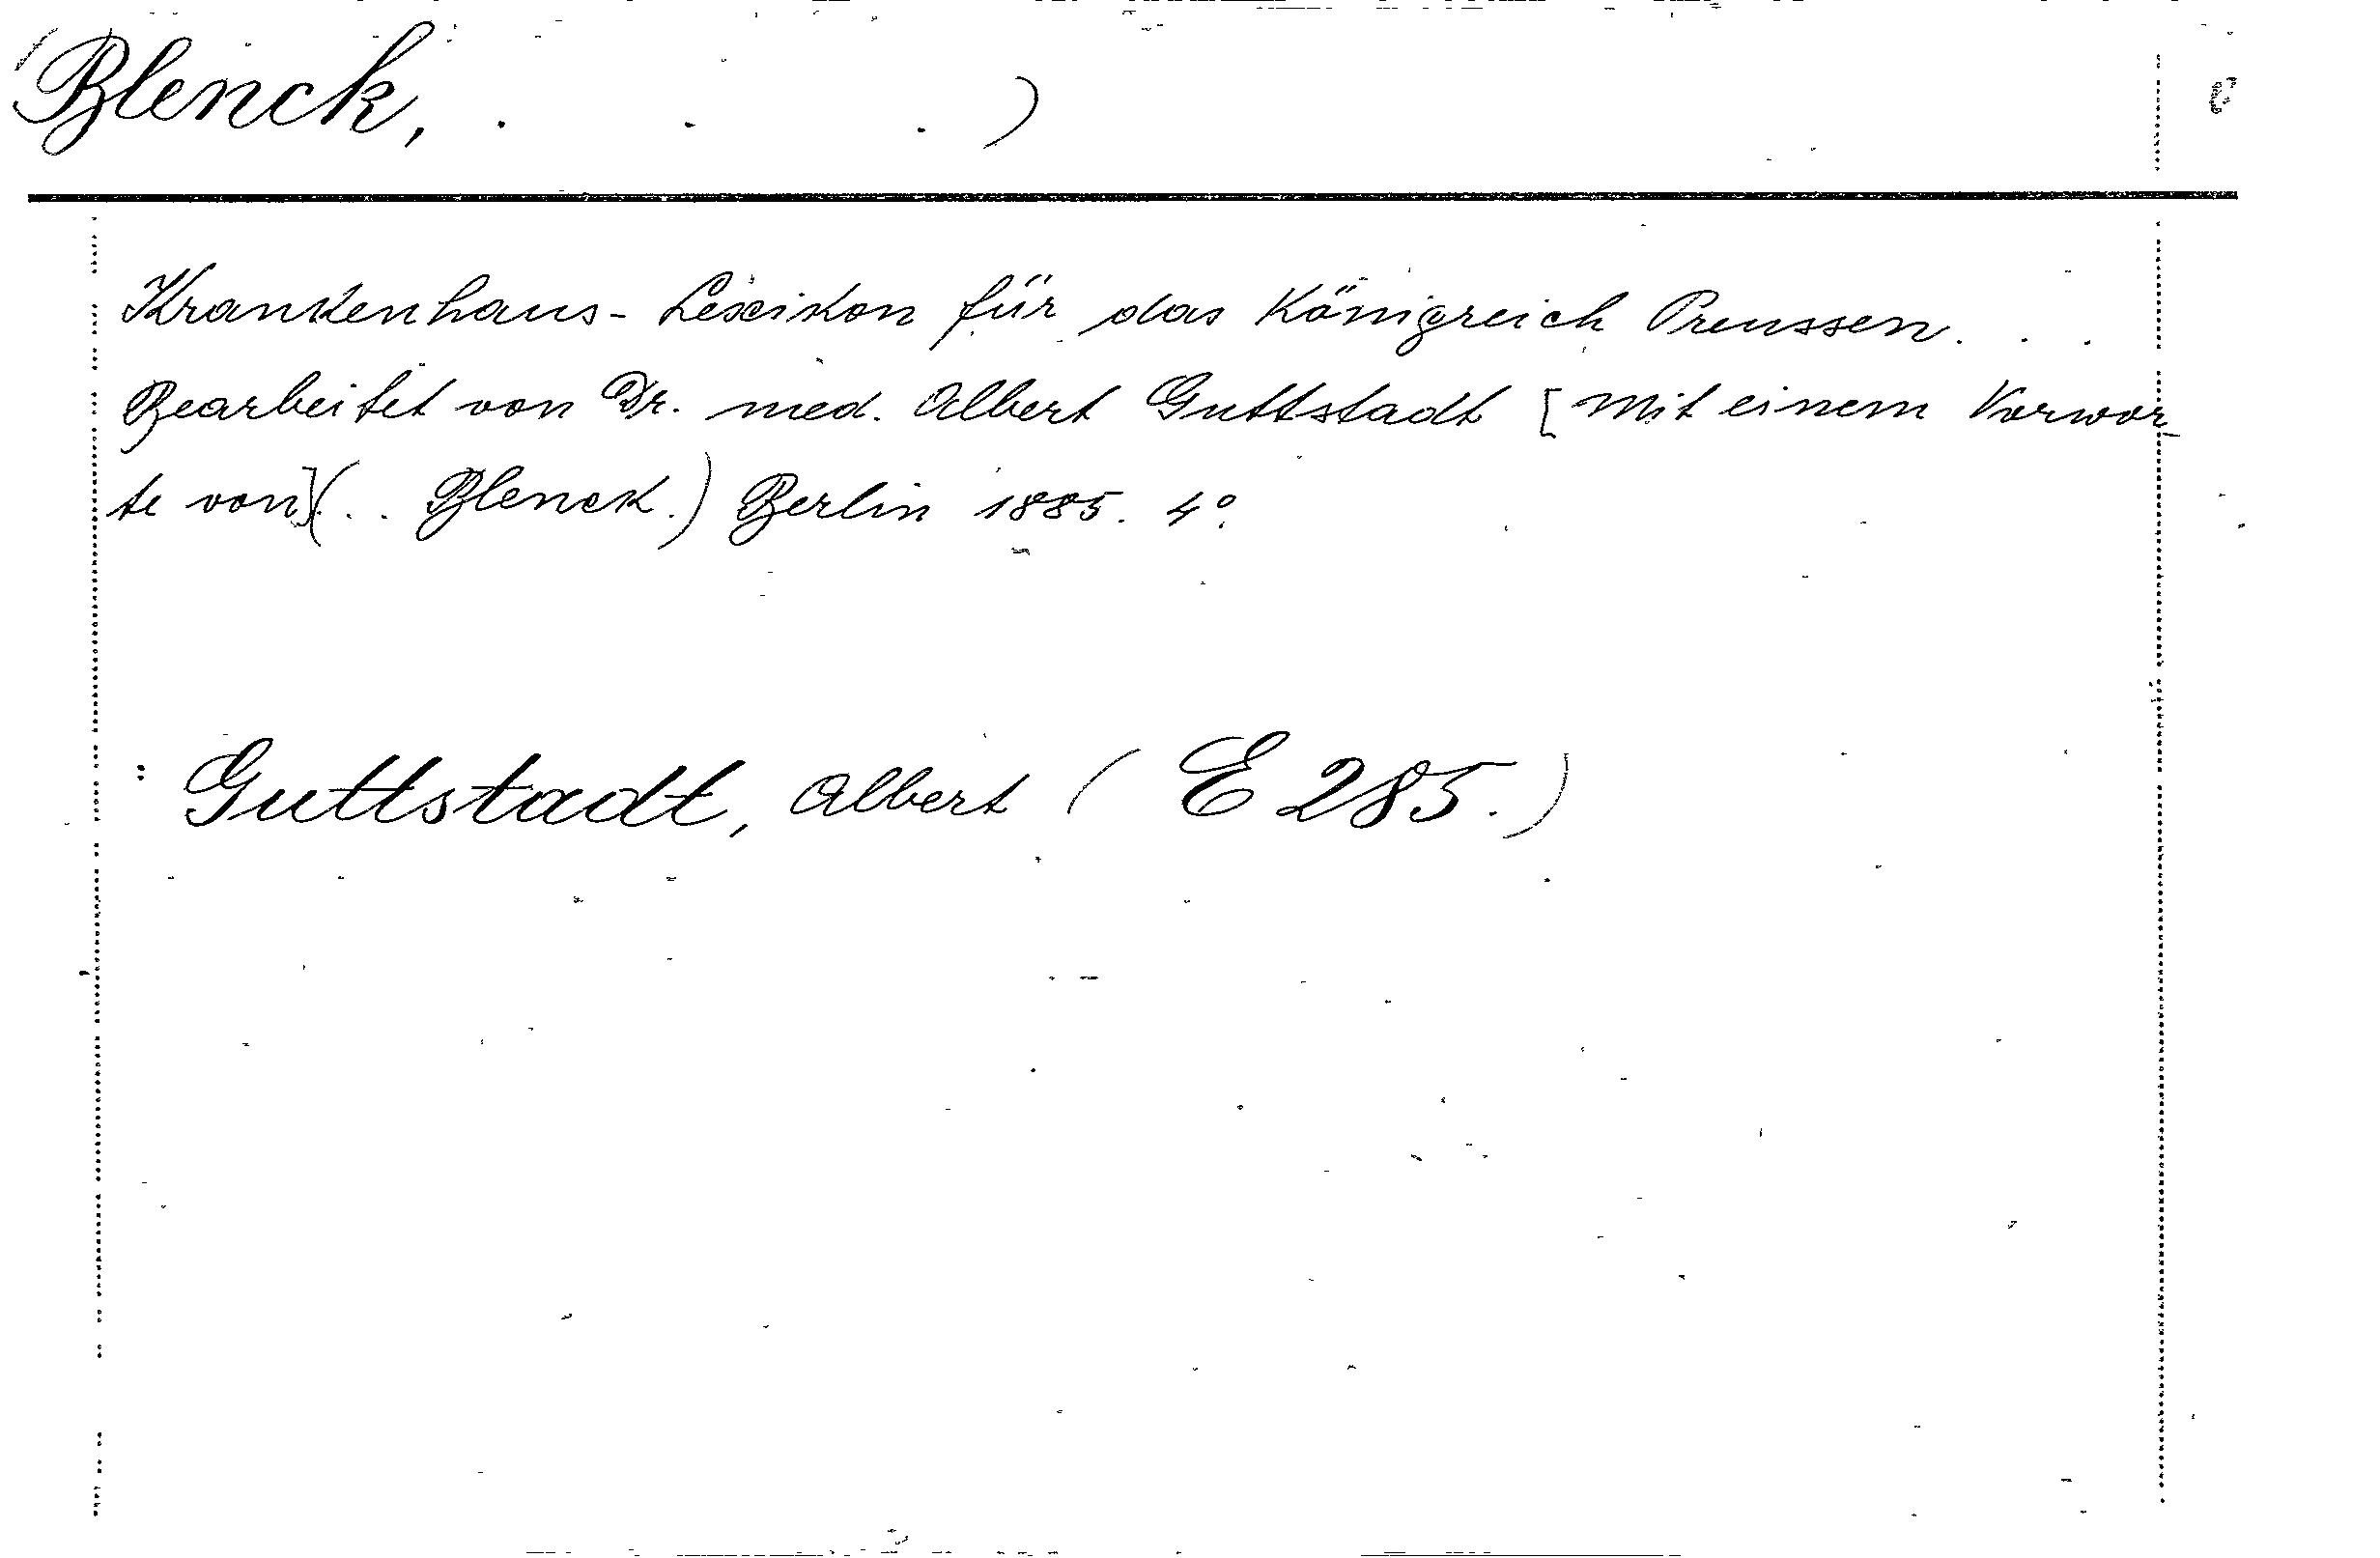 Blenck, . . . )
Krankenhaus-Lexikon für das Königreich Preussen. . .
Bearbeitet von Dr. med. Albert Guttstadt [Mit einem Vorwor-
te von](. . Blenck.) Berlin 1885. 4°.
: Guttstadt, Albert (E 285.)